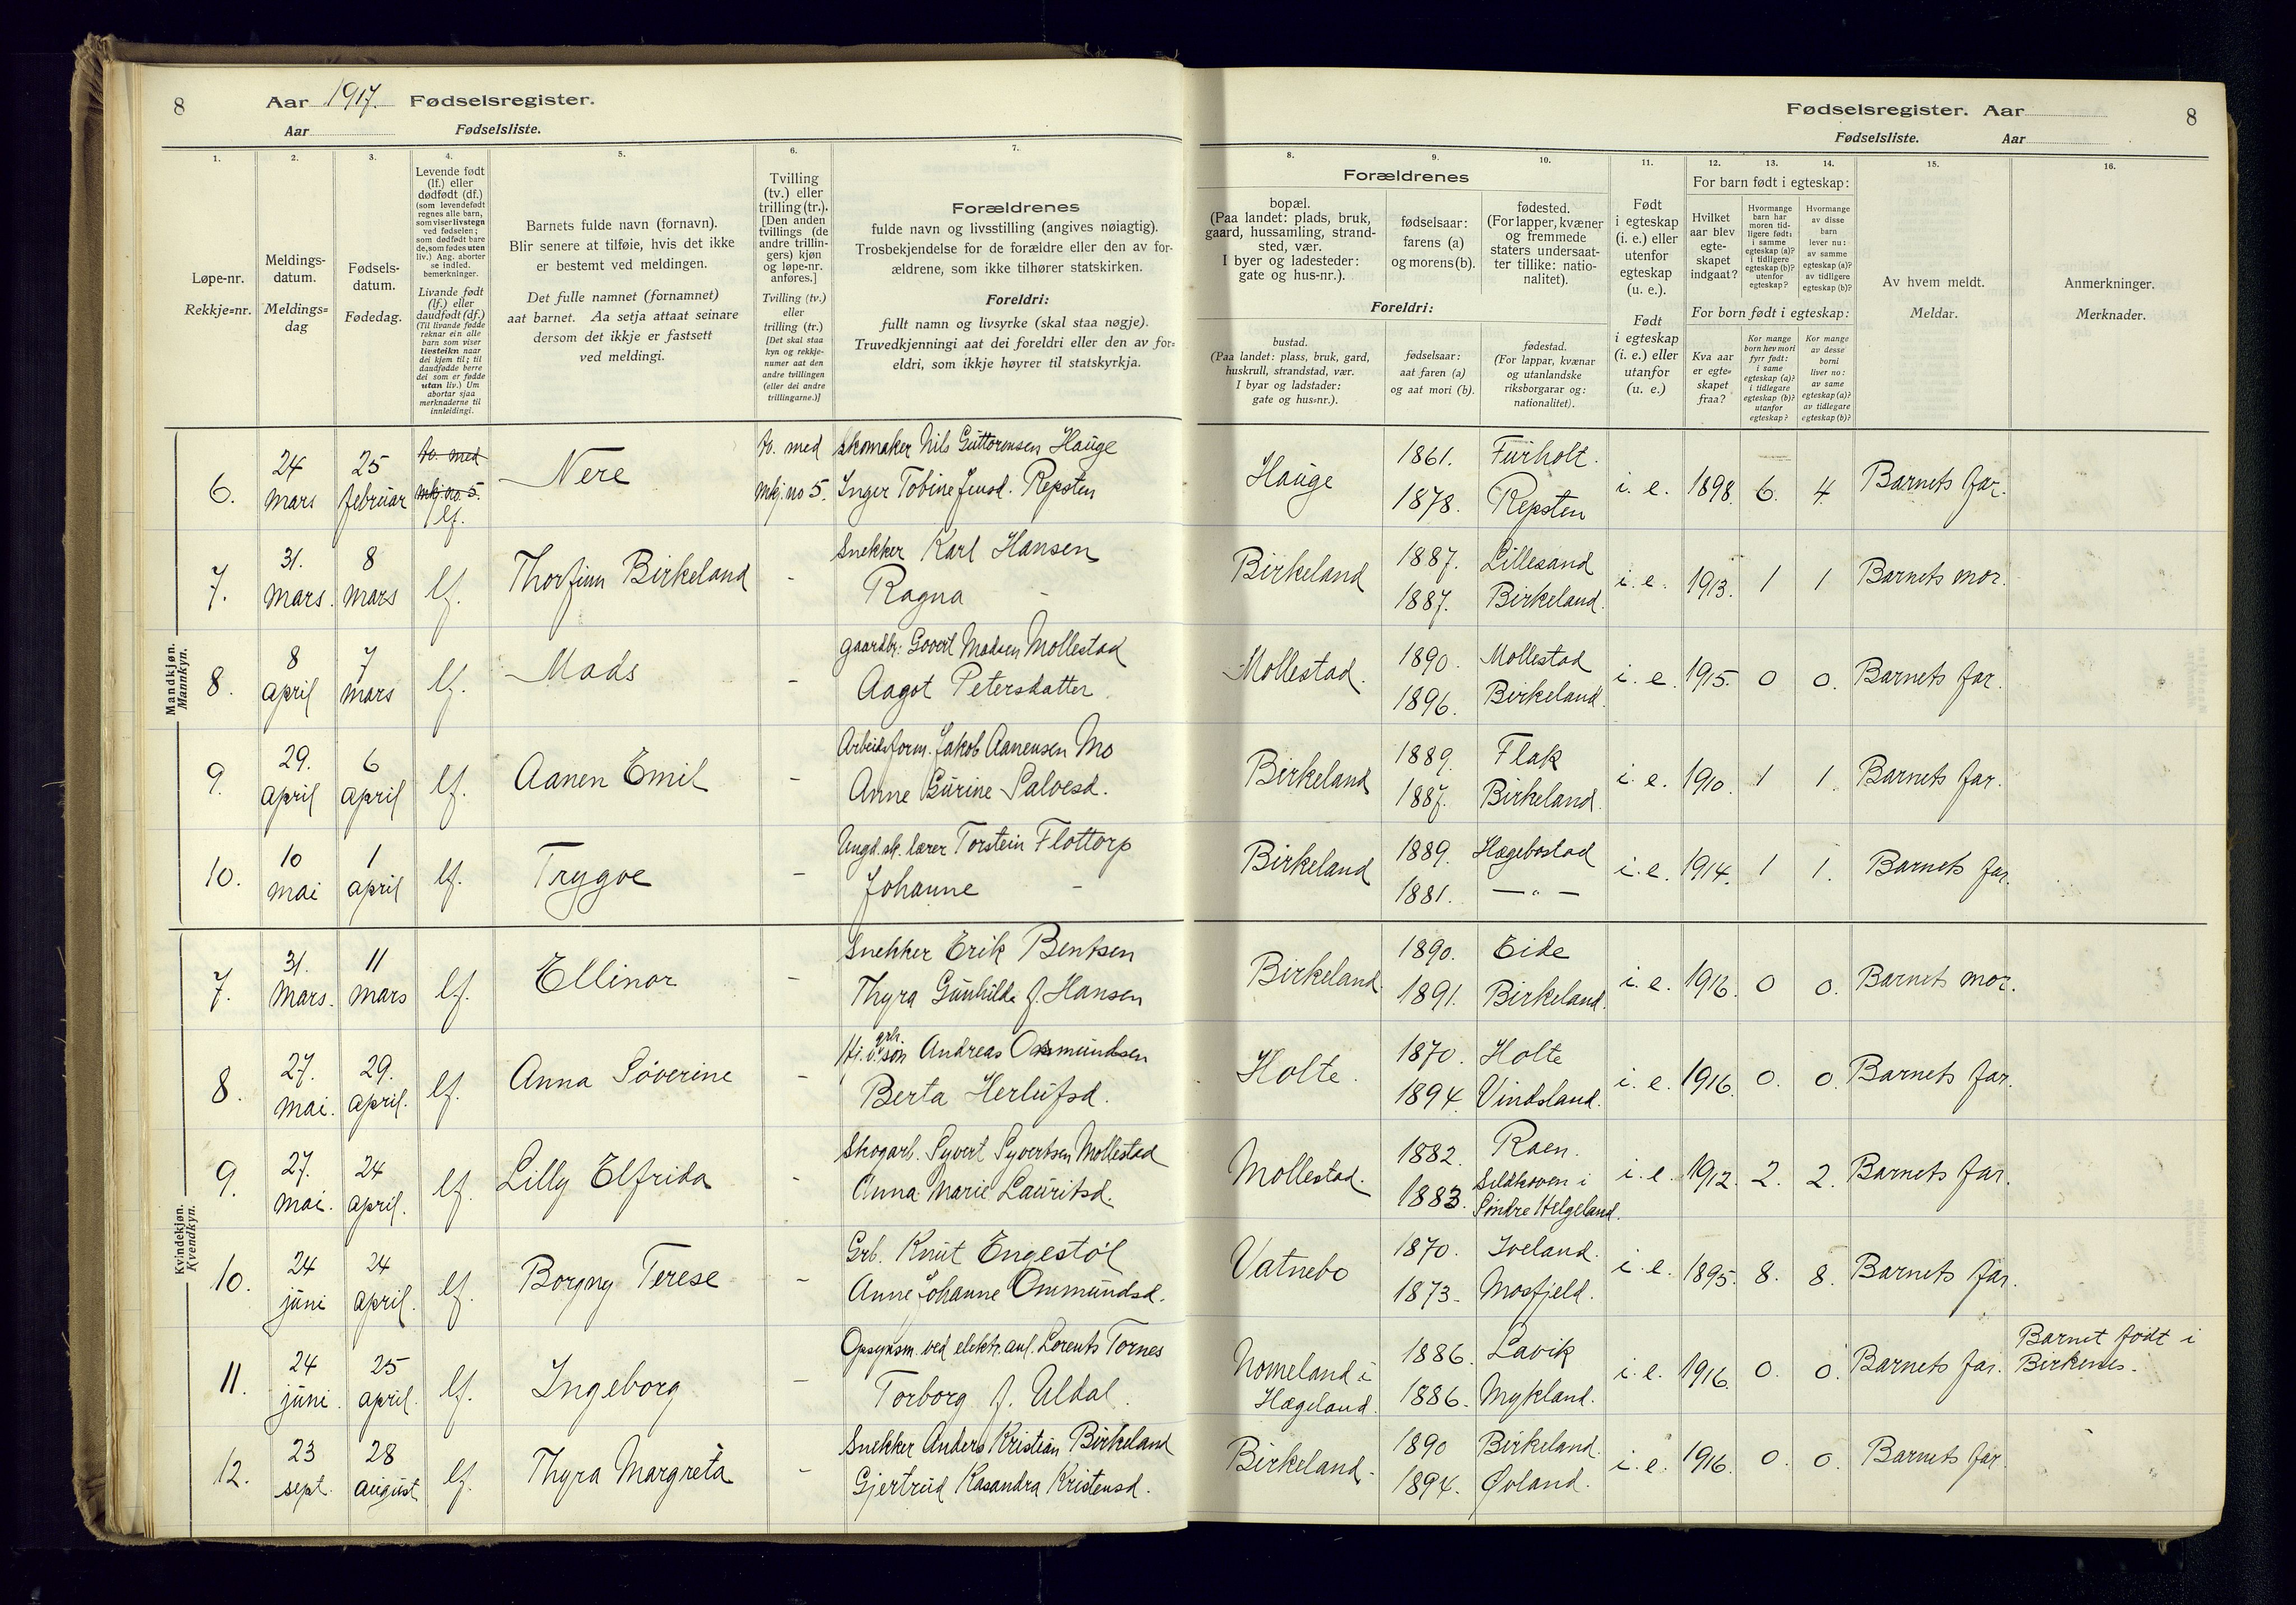 8 Aar 1917. Fødselsregister.
Aar Fødselsliste.
Fødselsregister. Aar 8
Fødselsliste. Aar
1. 2. 3. 4. 5. 6. 7. 8. 9. 10. 11. 12. 13. 14. 15. 16.
Løpe-nr.
Rekkje=nr.
Meldings-
datum.
Meldings=
dag
Fødsels-
datum.
Fødedag.
Levende født
(lf.) eller
dødfødt (df.)
(som levendefødt
regnes alle barn,
som viser livstegn
ved fødselen;
som dødfødt bare
de, som fødes uten
liv.) Ang. aborter
se indled.
bemerkninger.
Livande født
(lf.) eller
daudfødt (df.)
(Til livande fødde
reknar ein alle
barn som viser
livsteikn naar
dei kjem til; til
daudfødde berre
dei som er fødde
utan liv.) Um
abortar sjaa
merknaderne til
innleidingi.
Barnets fulde navn (fornavn).
Blir senere at tilføie, hvis det ikke
er bestemt ved meldingen.
Det fulle namnet (fornamnet)
aat barnet. Aa setja attaat seinare
dersom det ikkje er fastsett
ved meldingi.
Tvilling
(tv.) eller
trilling (tr.).
[Den anden
tvillings (de
andre trillin-
gers) kjøn
og løpe-nr.
anføres.]
Tvilling (tv.)
eller
trilling (tr.)
[Det skal staa
kyn og rekkje-
numer aat den
andre tvillingen
(eller dei andre
trillingarne.)]
Forældrenes
fulde navn og livsstilling (angives nøiagtig).
Trosbekjendelse for de forældre eller den av for-
ældrene, som ikke tilhører statskirken.
Foreldri:
fullt namn og livsyrke (skal staa nøgje).
Truvedkjenningi aat dei foreldri eller den av for=
eldri, som ikkje høyrer til statskyrkja.
Forældrenes
bopæl.
(Paa landet: plads, bruk,
gaard, hussamling, strand-
sted, vær.
I byer og ladesteder:
gate og hus-nr.).
fødselsaar:
farens (a)
og morens (b).
fødested.
(For lapper, kvæner
og fremmede
staters undersaat-
ter tillike: natio-
nalitet).
Foreldri:
bustad.
(Paa landet: plass, bruk, gard,
huskrull, strandstad, vær.
I byar og ladstader:
gate og hus=nr.).
fødselsaar:
aat faren (a)
og aat mori (b).
fødestad.
(For lappar, kvænar
og utanlandske
riksborgarar og:
nationalitet).
Født
i egteskap
(i. e.) eller
utenfor
egteskap
(u. e.).
Født
i egteskap
(i. e.) eller
utanfor
(u. e.)
For barn født i egteskap:
Hvilket
aar blev
egte-
skapet
indgaat?
Hvormange
barn har
moren tid-
ligere født:
i samme
egteskap (a)?
i tidligere
egteskap (b)?
utenfor
egteskap?
Hvormange
av disse
barn
lever nu:
av samme
egteskap (a)?
av tidligere
egteskap (b)?
For born født i egteskap:
Kva aar
er egte-
skapet
fraa?
Kor mange
born hev mori
fyrr født:
i same
egteskap (a)?
i tidlegare
egteskap (b)?
utanfor
egteskap?
Kor mange
av desse
borni
liver no:
av same
egteskap (a)?
av tidlegare
egteskap (b)?
Av hvem meldt.
Meldar.
Anmerkninger.
Merknader.
Mandkjøn.
Mannkyn.
6. 24 mars 25 februar tv. med mkj. no 5. lf. Nere tv. med mkj. no 5. Skomaker Nils Guttormsen Hauge
Inger Tobine Jensd. Repsten Hauge 1861. Furholt. 1878. Repsten i. e. 1898. 6. 4 Barnets far.
7. 31. mars. 8 mars lf. Thorfinn Birkeland - Snekker Karl Hansen
Ragna - Birkeland 1887. Lillesand 1887. Birkeland. i. e. 1913. 1 1 Barnets mor.
8. 8 april 7 mars lf. Mads - gaardbr. Govert Madsen Mollestad
Aagot Petersdatter. Mollestad. 1890. Mollestad 1896. Birkeland. i. e. 1915. 0 0. Barnets far.
9. 29. april 6 april lf. Aanen Emil - Arbeidsform. Jakob Aanensen Mo
Anne Gurine Salvesd. Birkeland 1889. Flak 1887. Birkeland. i. e. 1910. 1 1. Barnets far.
10. 10 mai 1 april lf. Trygve - Ungd. sk. lærer Torstein Flottorp
Johanne - Birkeland 1889. Hægebostad 1881. — " — i. e. 1914. 1 1. Barnets far.
Kvindekjøn.
Kvendkyn.
7. 31. mars. 11 mars lf. Ellinor - Snekker Erik Bentsen
Thyra Gunhilde f. Hansen Birkeland 1890. Eide 1891. Birkeland. i. e. 1916. 0 0. Barnets mor.
8. 27. mai. 29. april. lf. Anna Søverine - grb. Andreas Osmundsen
Berta Herlufsd. Holte. 1870. Holte 1894. Vindsland. i. e. 1916. 0. 0. Barnets far.
9. 27. mai. 24 april. lf. Lilly Elfrida - Skogarb. Syvert Syvertsen Mollestad
Anna Marie Lauritsd. Mollestad. 1882. Raen. 1883. i Søndre Helgeland. i. e. 1912. 2. 2. Barnets far.
10. 24 juni 24 april. lf. Borgny Terese - Grb. Knut Engestøl
Anne Johanne Ommundsd. Vatnebo 1870. Iveland. 1873. Mosfjeld. i. e. 1895. 8. 8. Barnets far.
11. 24 juni. 25 april. lf. Ingeborg - Opsynsm. ved elektr. anl. Lorents Tornes
Torborg f. Uldal. Nomeland i Hægeland. 1886. Lavik 1886. Mykland. i. e. 1916. 0. 0. Barnets far. Barnet født i Birkenes.
12. 23 sept. 28 august lf. Thyra Margreta - Snekker Anders Kristian Birkeland
Gjertrud Kasandra Kristensd. Birkeland. 1890 Birkeland. 1894. Øvland. i. e. 1916. 0. 0. Barnets far.